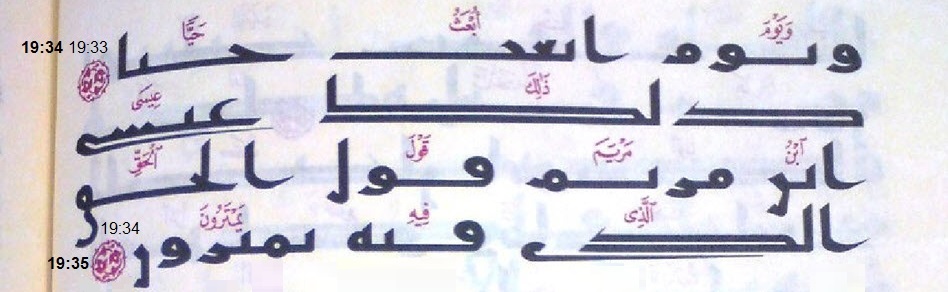 وَيَوْمَ أُبْعَثُ حَيًّا
ويوم ابعث حيا 19:34 19:33
ذَٰلِكَ عِيسَى
ذلك عيسى
ٱبْنُ مَرْيَمَ قَوْلَ ٱلْحَقِّ
ابن مريم قول الحق
ٱلَّذِى فِيهِ يَمْتَرُونَ 19:34
الذى فيه يمترون 19:35